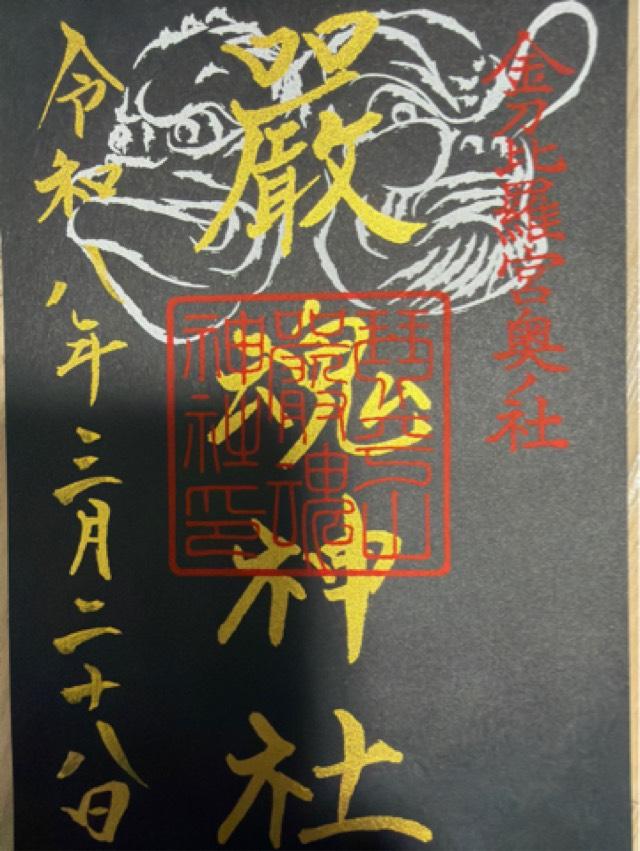 金刀比羅宮奥ノ社
嚴魂神社
琴平山
嚴魂
神社印
令和八年三月二十八日